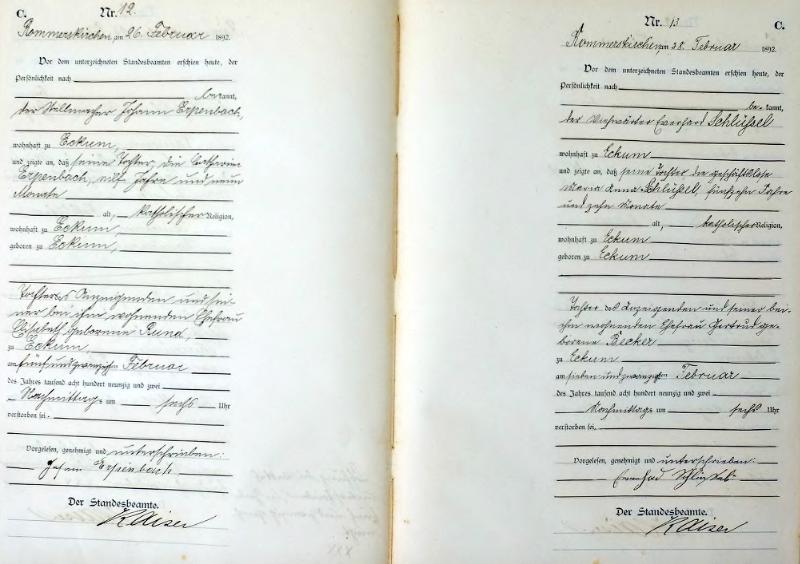 C.
Nr. 12.
Rommerskirchen am 26. Februar 1892.
Vor dem unterzeichneten Standesbeamten erschien heute, der
Persönlichkeit nach
bekannt,
der Stellmacher Johann Erpenbach,
wohnhaft zu Eckum,
und zeigte an, daß seine Tochter, die Catharina
Erpenbach, elf Jahre und neun
Monate
alt, katholischer Religion,
wohnhaft zu Eckum,
geboren zu Eckum,
Tochter des Anzeigenden und sei-
ner bei ihm wohnenden Ehefrau
Elisabeth geborenen Rund,
zu Eckum,
am fünfundzwanzigsten Februar
des Jahres tausend acht hundert neunzig und zwei
Nachmittags um sechs Uhr
verstorben sei.
Vorgelesen, genehmigt und unterschrieben:
Johann Erpenbach
Der Standesbeamte.
Kaiser
Nr. 13
C.
Rommerskirchen am 28. Februar 1892.
Vor dem unterzeichneten Standesbeamten erschien heute, der
Persönlichkeit nach
be-kannt,
der Everhard Schlüssel
wohnhaft zu Eckum
und zeigte an, daß seine Tochter die geschäftslose
Maria Anna Schlüssel, fünfzehn Jahre
und zehn Monate
alt, katholischer Religion,
wohnhaft zu Eckum
geboren zu Eckum
Tochter des Anzeigenden und seiner bei
ihm wohnenden Ehefrau Gertrud ge-
borene Becker
zu Eckum
am sieben und zwanzigsten Februar
des Jahres tausend acht hundert neunzig und zwei
Nachmittags um sechs Uhr
verstorben sei.
Vorgelesen, genehmigt und unterschrieben:
Everhard Schlüssel
Der Standesbeamte.
Kaiser